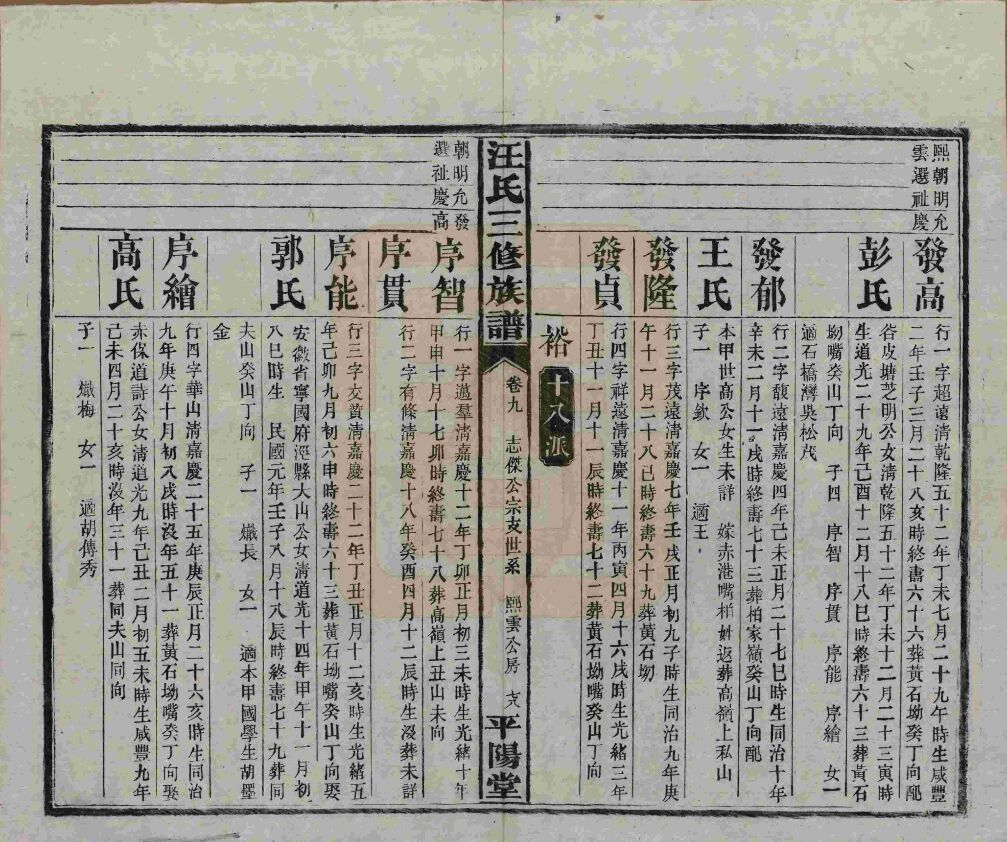 熙朝明允
雲選祉慶
發高
行一字超遠清乾隆五十二年丁未七月二十九午時生咸豐
二年壬子三月二十八亥時終壽六十六葬黃石坳癸丁向配
彭氏
谷皮塘芝明公女清乾隆五十二年丁未十二月二十三寅時
生道光二十九年己酉十二月十八巳時終壽六十三葬黃石
坳嘴癸山丁向 子四 序智 序貫 序能 序繪 女一
適石橋灣吳松茂
發郁
行二字馥遠清嘉慶四年己未正月二十七巳時生同治十年
辛未二月十一戌時終壽七十三葬柏家嶺癸山丁向配
王氏
本甲世高公女生未詳 嫁赤港嘴柏姓返葬高嶺上私山
子一 序欽 女一 適王
發隆
行三字茂遠清嘉慶七年壬戌正月初九子時生同治九年庚
午十一月二十八巳時終壽六十九葬黃石坳
發貞
行四字祥遠清嘉慶十一年丙寅四月十六戌時生光緒三年
丁丑十一月十一辰時終壽七十二葬黃石坳嘴癸山丁向
裕 十八派
汪氏三修族譜 卷九 志傑公宗支世系 熙雲公房 平陽堂
朝明允發
選祉慶高
序智
行一字邁羣清嘉慶十二年丁卯正月初三未時生光緒十年
甲申十月十七卯時終壽七十八葬高嶺上丑山未向
序貫
行二字有條清嘉慶十八年癸酉四月十二辰時生沒葬未詳
序能
行三字交賛清嘉慶二十二年丁丑正月十二亥時生光緒五
年己卯九月初六申時終壽六十三葬黃石坳嘴癸山丁向娶
郭氏
安徽省寧國府涇縣大山公女清道光十四年甲午十一月初
八巳時生 民國元年壬子八月十八辰時終壽七十九葬同
夫山癸山丁向 子一 熾長 女一 適本甲國學生胡璧
金
序繪
行四字華山清嘉慶二十五年庚辰正月二十六亥時生同治
九年庚午十月初八戌時沒年五十一葬黃石坳嘴癸丁向娶
高氏
赤保道詩公女清道光九年己丑二月初五未時生咸豐九年
己未四月二十亥時沒年三十一葬同夫山同向
子一 熾梅 女一 適胡傳秀